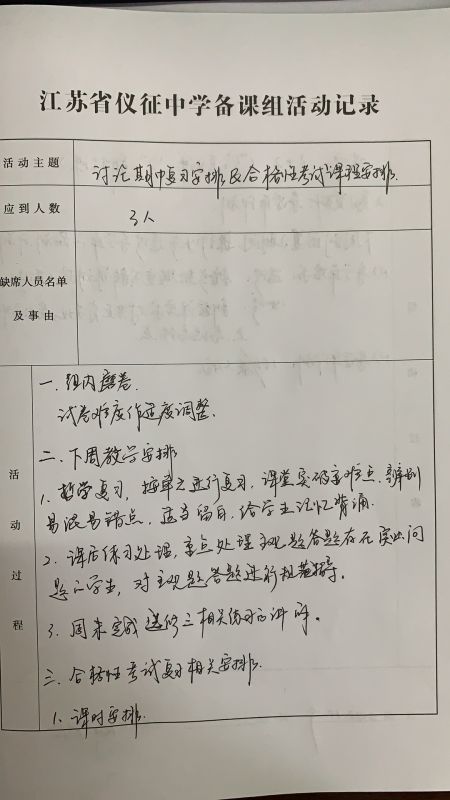 江苏省仪征中学备课组活动记录
活动主题 讨论期中复习安排及合格性考试课程安排.
应到人数 3人
缺席人员名单
及事由
活动过程
一.组内磨卷.
试卷难度作适度调整.
二.下周教学安排
1.哲学复习,按单元进行复习.课堂突破重难点.辨别
易混易错点,适当留白,给学生记忆背诵.
2.课后练习处理,重点处理主观题答题存在突出问
题的学生,对主观题答题进行规范指导.
3.周末完成选修三相关练习的讲评.
三.合格性考试复习相关安排.
1.课时安排.